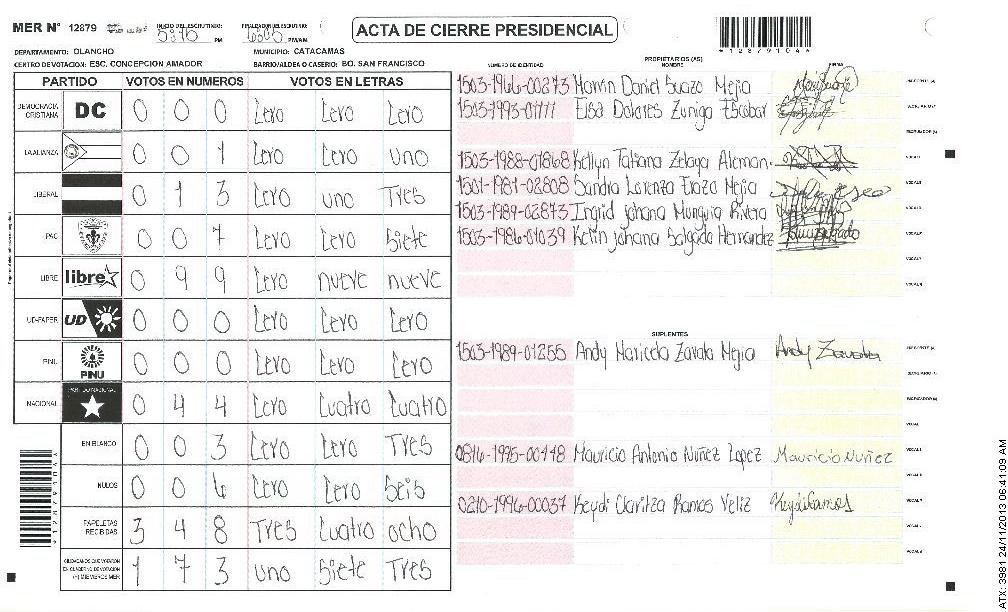 MER N° 12879 INICIO DEL ESCRUTINIO: 5:15 PM FINALIZACION DEL ESCRUTINIO: PM/AM
ACTA DE CIERRE PRESIDENCIAL
*128791046*
DEPARTAMENTO: OLANCHO MUNICIPIO: CATACAMAS
CENTRO DE VOTACION: ESC. CONCEPCION AMADOR BARRIO/ALDEA O CASERIO: BO. SAN FRANCISCO
PARTIDO VOTOS EN NUMEROS VOTOS EN LETRAS
DEMOCRACIA CRISTIANA DC 0 0 0 Cero Cero Cero
LA ALIANZA 0 0 1 Cero Cero uno
LIBERAL 0 1 3 Cero uno Tres
PAC 0 0 7 Cero Cero Siete
LIBRE libre 0 9 9 Cero nueve nueve
UD-FAPER UD 0 0 0 Cero Cero Cero
PINU PINU 0 0 0 Cero Cero Cero
NACIONAL PARTIDO NACIONAL 0 4 4 Cero Cuatro Cuatro
EN BLANCO 0 0 3 Cero Cero Tres
NULOS 0 0 6 Cero Cero Seis
PAPELETAS RECIBIDAS 3 4 8 Tres Cuatro ocho
CIUDADANOS QUE VOTARON EN CUADERNO DE VOTACION (+) MIEMBROS MER 1 7 3 uno Siete Tres
PROPIETARIOS (AS)
NUMERO DE IDENTIDAD NOMBRE FIRMA
1503-1966-00273 Marvin Daniel Suazo Mejia
1503-1993-01111 Elsa Dolores Zuniga Escobar
1503-1988-01868 Kellyn Tatiana Zelaya Aleman
1501-1981-02808 Sandra Lorenza Erazo Mejia
1503-1989-02873 Ingrid Johana Munguia Rivera
1503-1986-01039 Kelin Johana Salgado Hernandez
SUPLENTES
1503-1989-01255 Andy Maricela Zavala Mejia Andy Zavala
1995-00448 Mauricio Antonio Nuñez Lopez Mauricio Nuñez
0210-1996-00037 Keydi Claritza Ramos Veliz Keydi Ramos
ATX: 3981 24/11/2013 06:41:09 AM